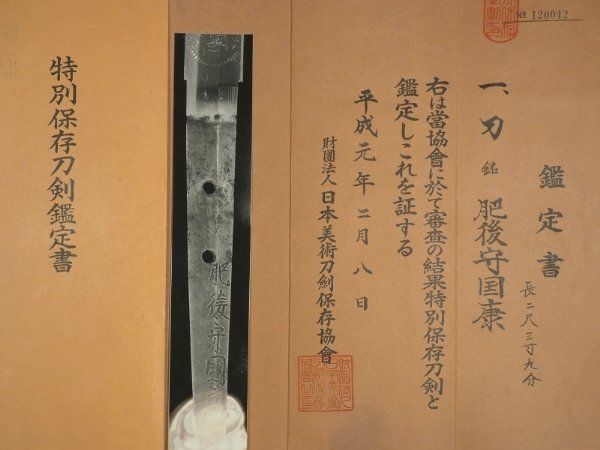 № 120042
鑑定書
一、刀 銘 肥後守国康
長二尺三寸九分
右は當協會に於て審査の結果特別保存刀剣と
鑑定しこれを証する
平成元年二月八日
財團法人日本美術刀剣保存協會
肥後守国
特別保存刀剣鑑定書